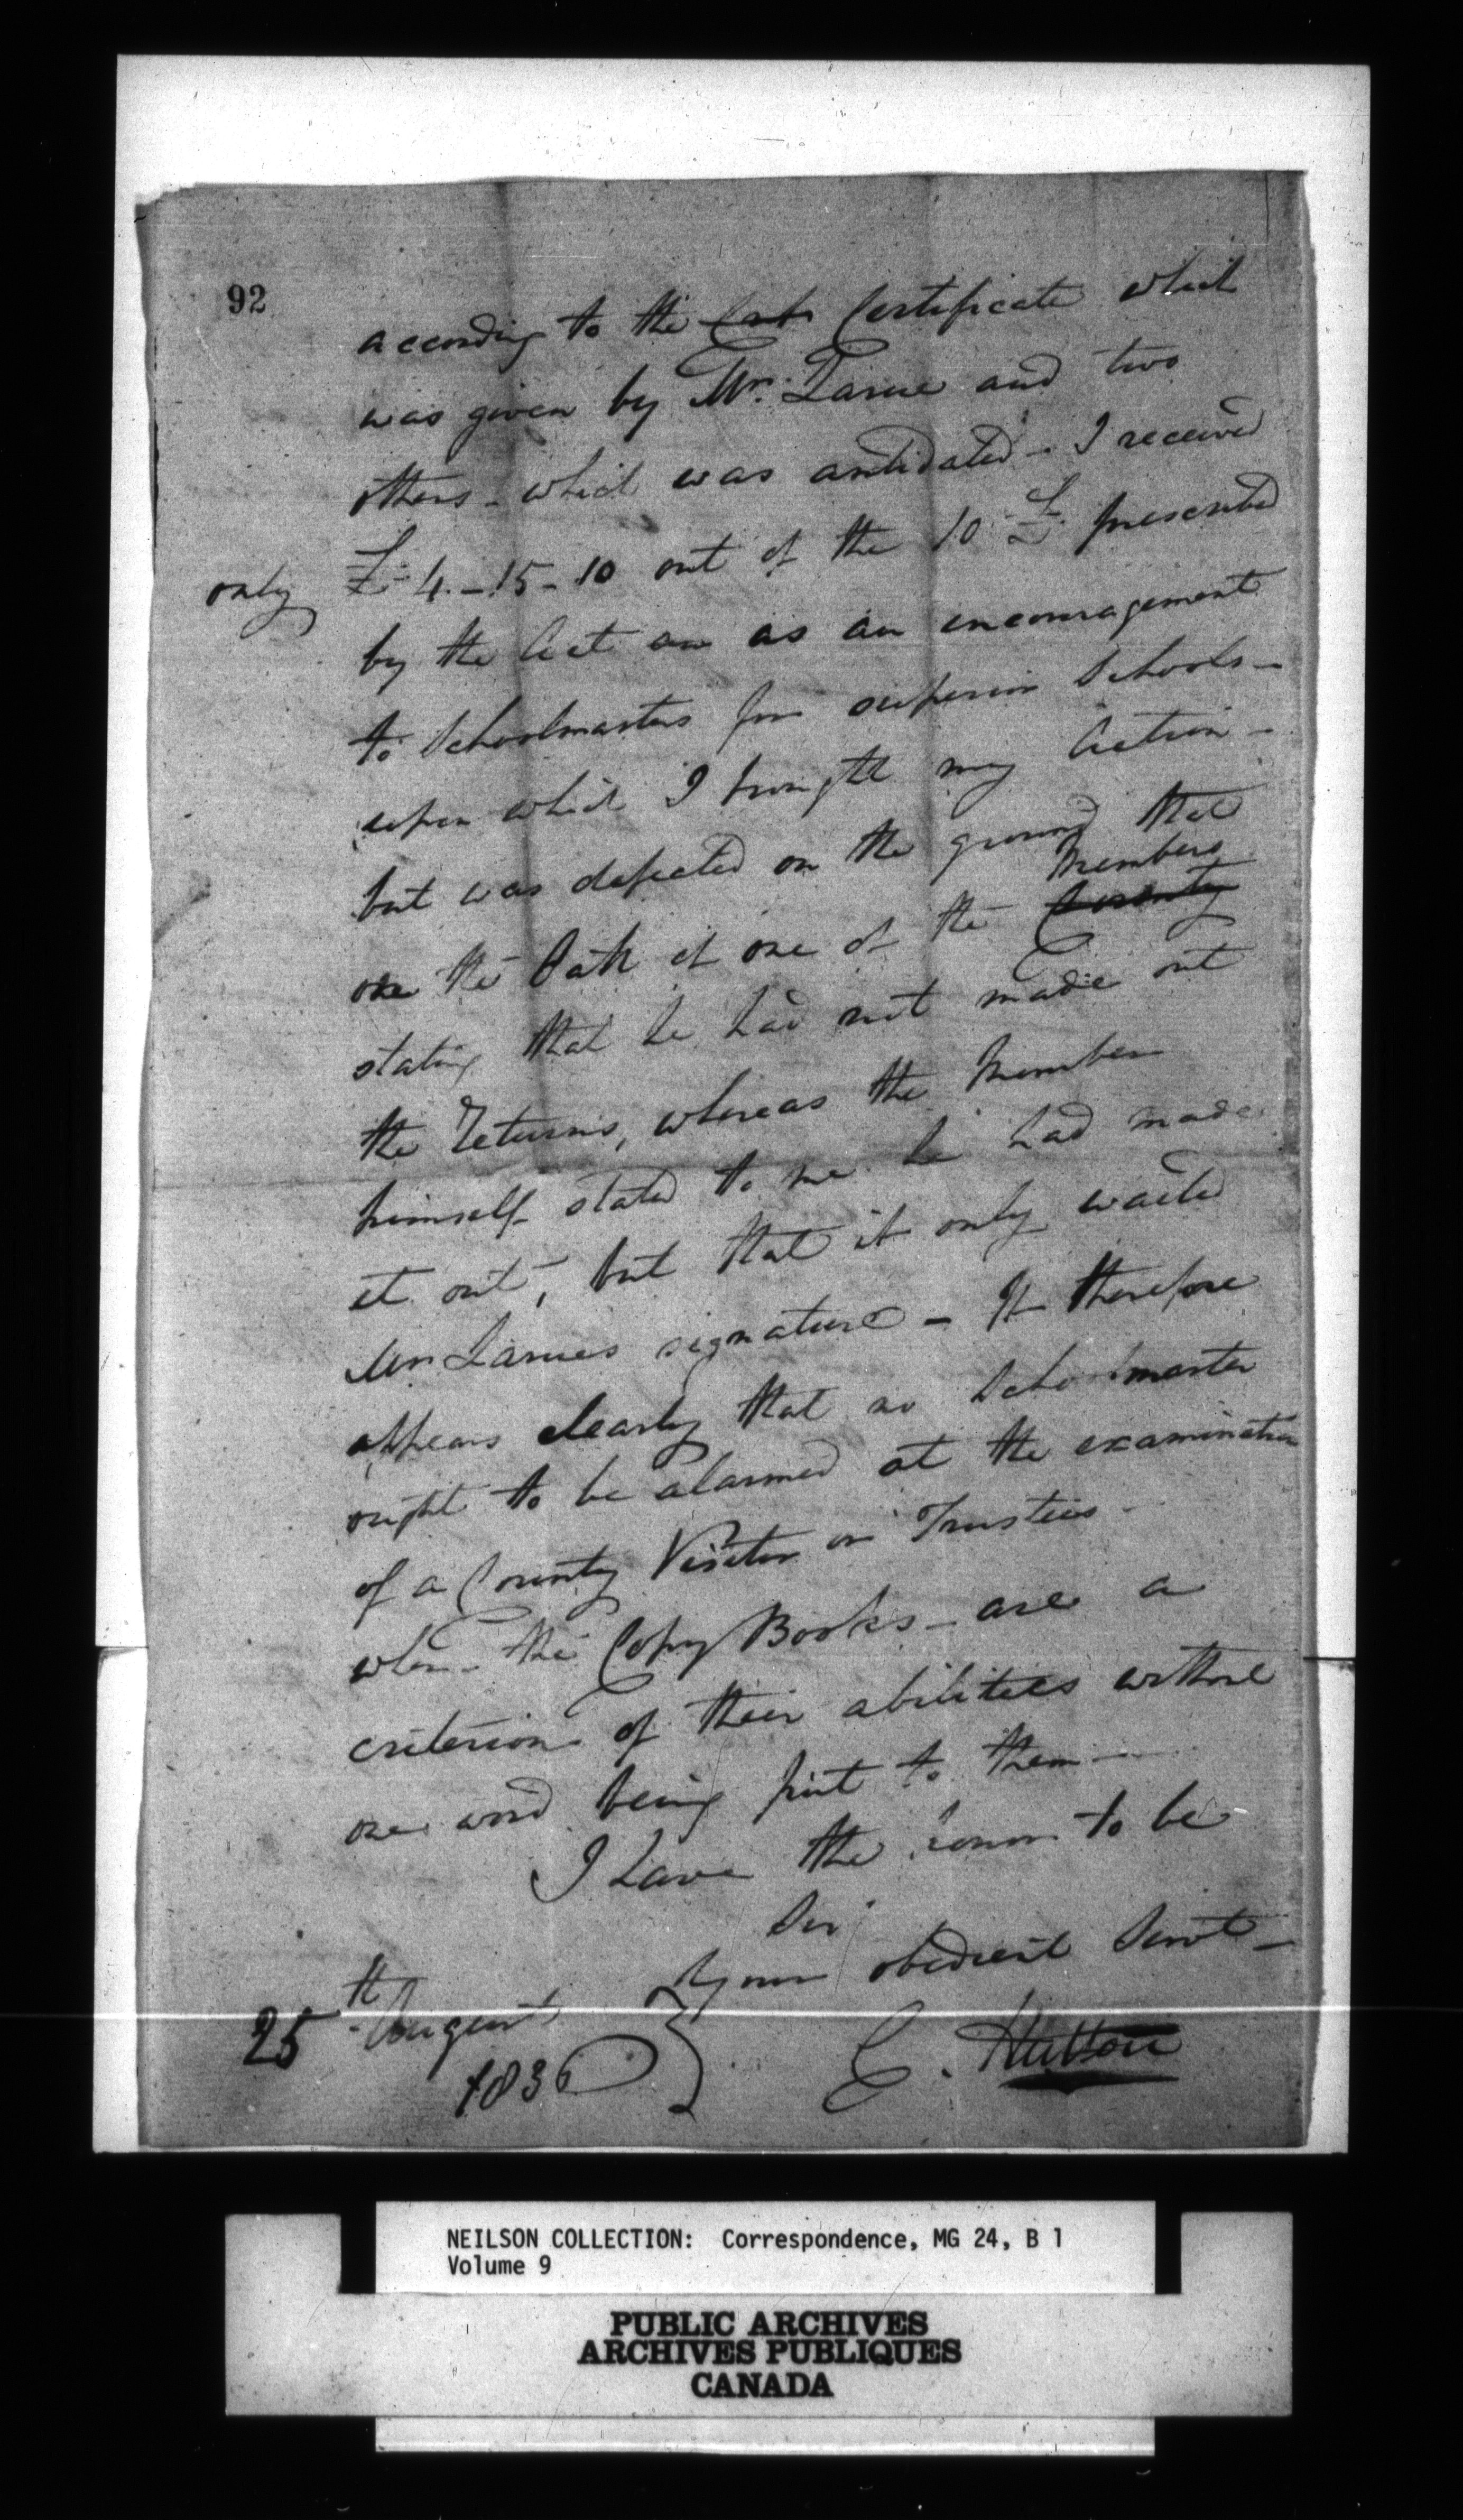 92
according to the Cert Certificate which
was given by Mr. Larue and two
others - which was antidated - I received
only £ 4. - 15 - 10 out of the 10 £ prescribed
by the Act an as an encouragement
to Schoolmasters for superior Schools -
upon which I brought my Action -
but was defeated on the ground that
Members
one the Oath of one of the County
stating that he had not made out
the Returns, whereas the Member
himself stated to me he had made
it out, but that it only waited
Mr Larues signature - It therefore
appears clearly that no Schoolmaster
ought to be alarmed at the examination
of a County Visitor or Trustees -
when the Copy Books - are a
criterion of their abilities without
one word being put to them -
I have the honor to be
Sir
Your obedient Servt -
25th August
1836
E. Hutton
NEILSON COLLECTION: Correspondence, MG 24, B 1
Volume 9
PUBLIC ARCHIVES
ARCHIVES PUBLIQUES
CANADA